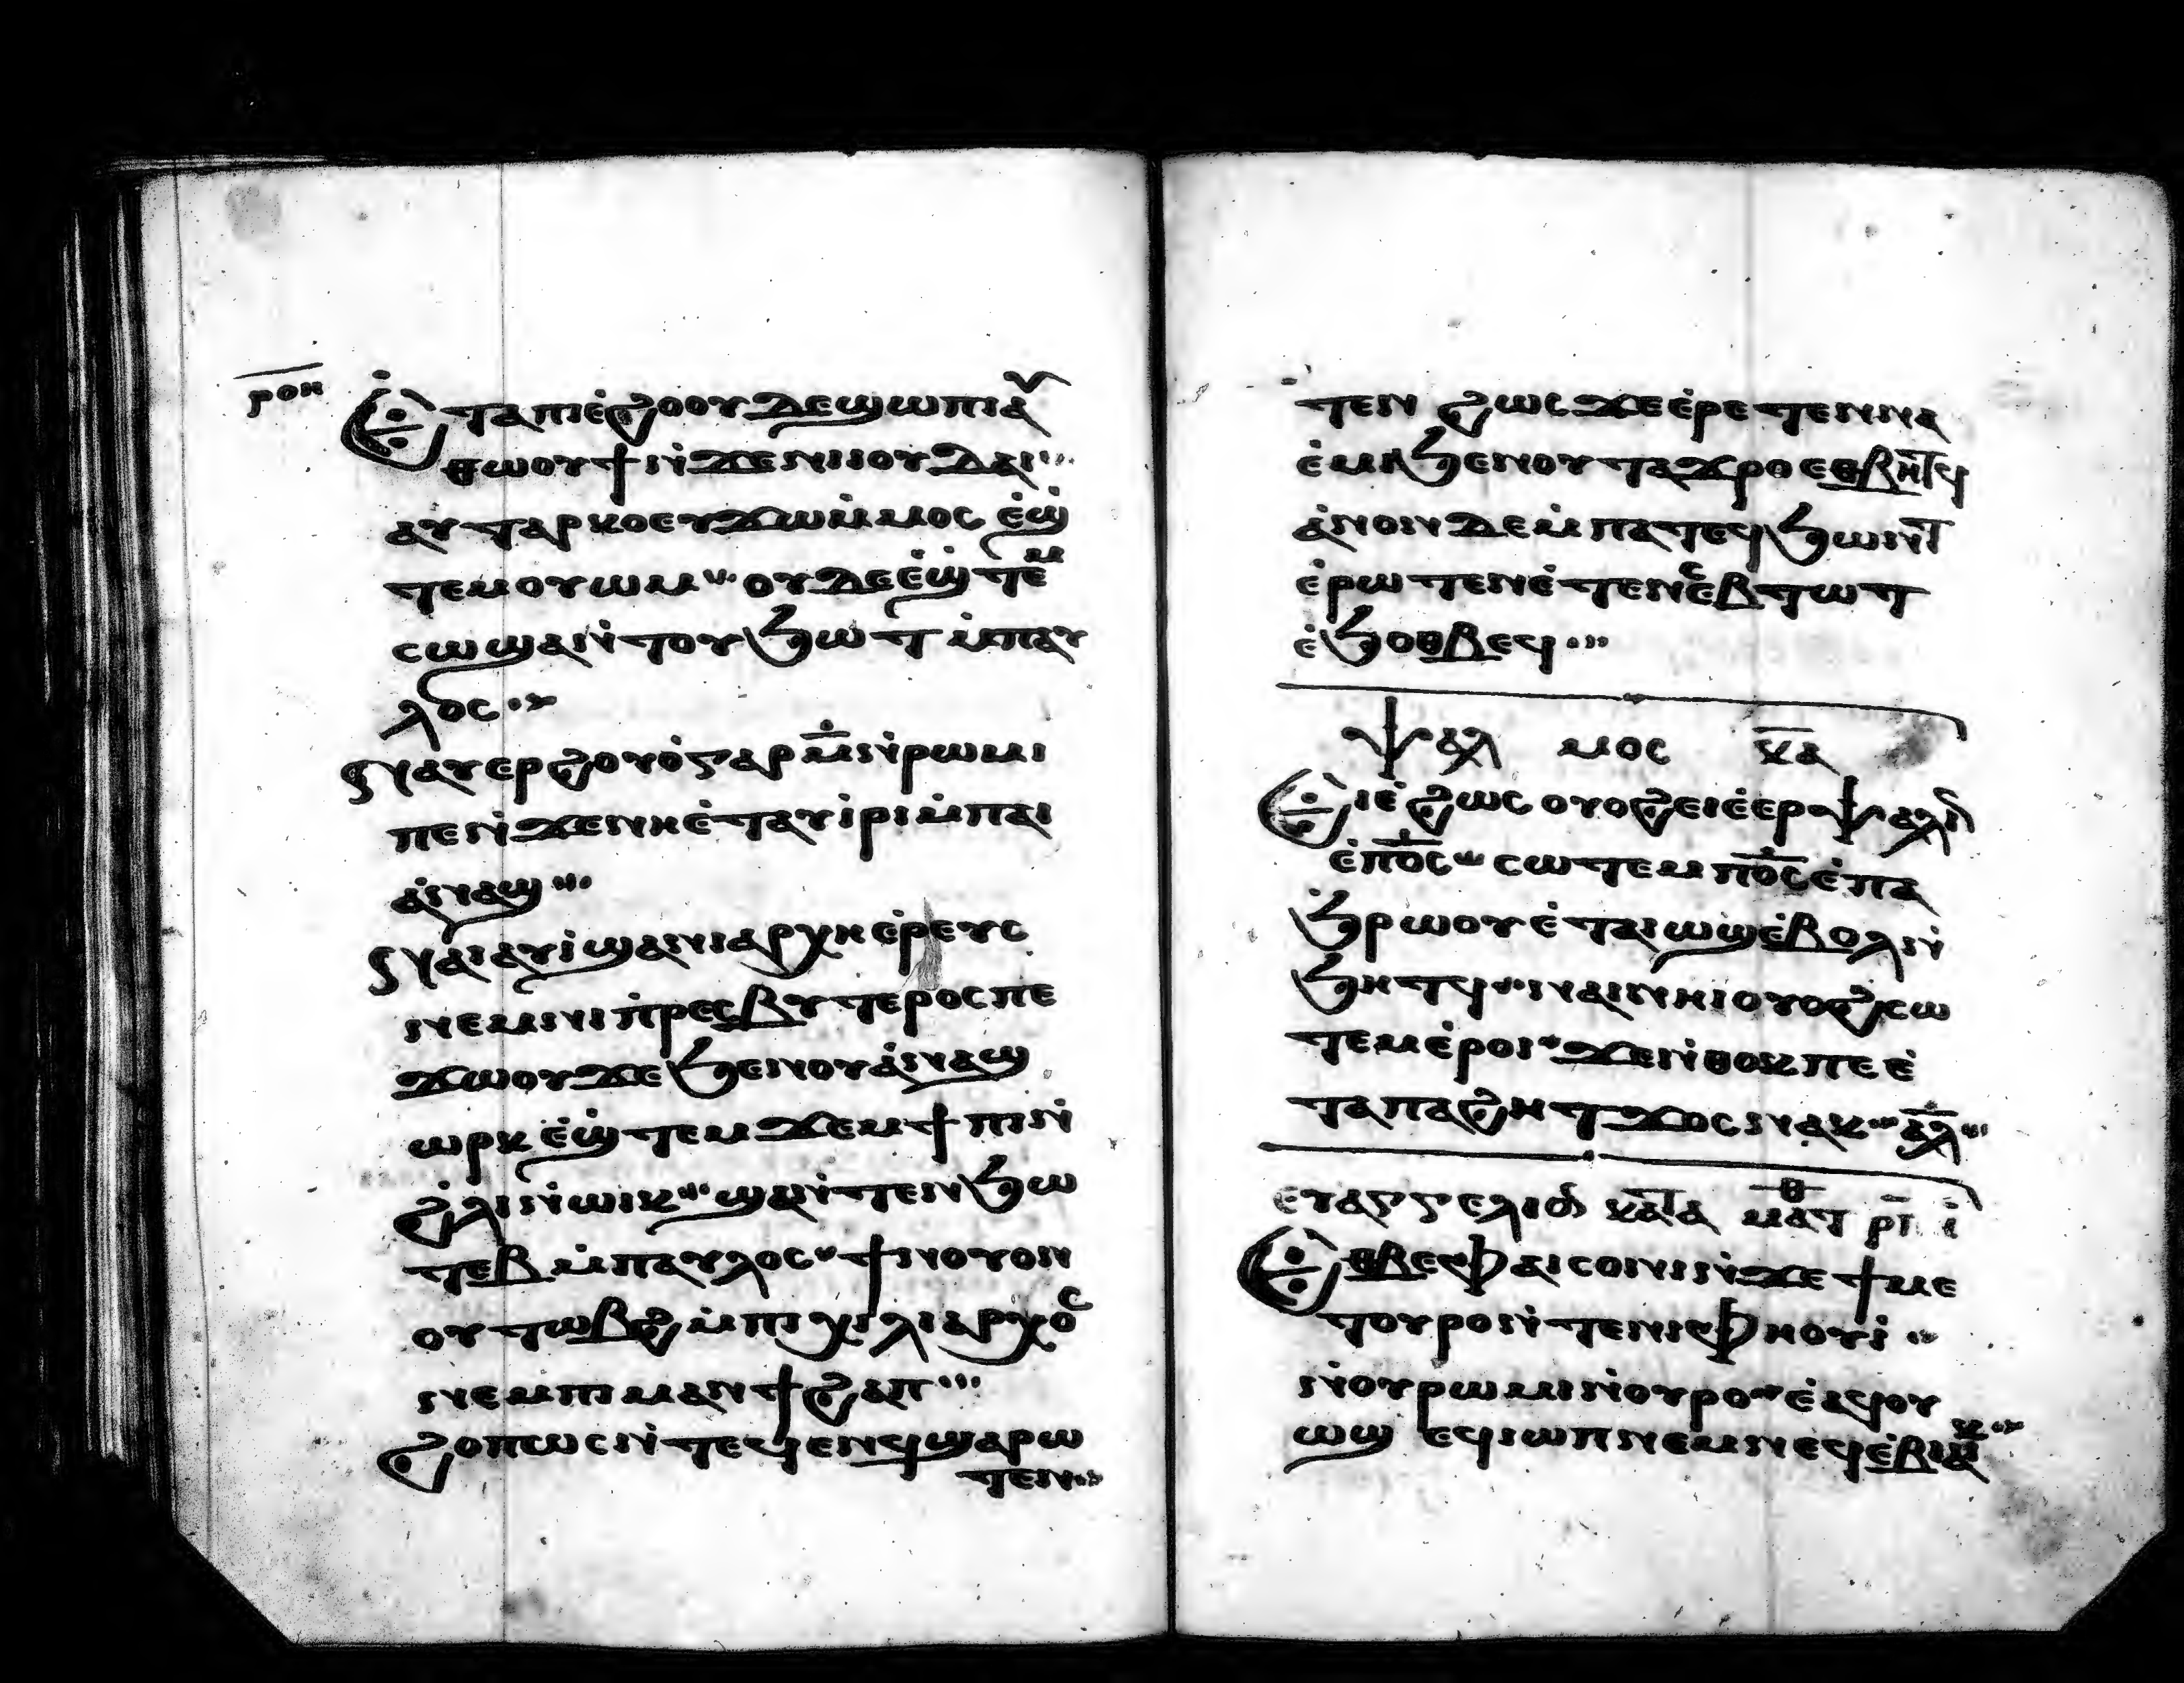 ⲣⲟⲏ
Ⲉ̇ⲧⲁⲡⲓⲉ̇ϩⲟⲟⲩⲇⲉϣⲱⲡⲓⲁⲩ
ⲑⲱⲟⲩϯⲛ̇ϫⲉⲛⲓⲓⲟⲩⲇⲁⲓ
ⲁⲩⲧⲁⲣⲕⲟⲉⲩϫⲱⲙ̇ⲙⲟⲥ ⲉ̇ϣ̇
ⲧⲉⲙⲟⲩⲱⲙ ⲟⲩⲇⲉⲉ̇ϣ̇ⲧⲉⲙ
ⲥⲱϣⲁⲛ̇ⲧⲟⲩϧⲱⲧⲉⲃ ⲙ̇ⲡⲁⲩ
ⲗⲟⲥ
ⲛⲁⲩⲉⲣϩⲟⲩⲟ̇ⲅⲁⲣⲙ̅̇ⲛ̇ⲣⲱⲙⲓ
ⲡⲉⲛ̇ϫⲉⲛⲏⲉ̇ⲧⲁⲩⲓ̇ⲣⲓⲙ̇ⲡⲁⲓ
ⲁ̇ⲛⲁϣ
ⲛⲁⲓⲁⲩⲓ̇ϣⲁⲛⲓⲁⲣⲭⲏⲉ̇ⲣⲉⲩⲥ
ⲛⲉⲙⲛⲓⲡ̇ⲣⲉⲥⲃⲩⲧⲉⲣⲟⲥⲡⲉ
ϫⲱⲟⲩϫⲉϧⲉⲛⲟⲩⲁ̇ⲛⲁϣ
ⲱⲣⲕ ⲉ̇ϣ̇ⲧⲉⲙϫⲉⲙϯⲡⲓⲛ̇
ϩ̇ⲗⲓⲛ̇ⲱⲓⲕ ϣⲁⲛ̇ⲧⲉⲛϧⲱ
ⲧⲉⲃⲙ̇ⲡⲁⲩⲗⲟⲥ ϯⲛⲟⲩⲟⲛ
ⲟⲩⲧⲱⲃϩⲙ̇ⲡⲓⲭⲓⲗⲓⲁⲣⲭⲟⲥ
ⲛⲉⲙⲡⲓⲙⲁⲛϯϩⲁⲡ
ϩⲟⲡⲱⲥⲛ̇ⲧⲉϥⲉⲛϥϣⲁⲣⲱ
ⲧⲉⲛ
ⲧⲉⲛ ϩⲱⲥϫⲉⲉ̇ⲣⲉⲧⲉⲛⲛⲁ
ⲉ̇ⲙⲓϧⲉⲛⲟⲩⲧⲁϫⲣⲟⲉⲑⲃⲏⲧϥ
ⲁ̇ⲛⲟⲛⲇⲉⲙ̇ⲡⲁⲧⲉϥϧⲱⲛⲧ
ⲉ̇ⲣⲱⲧⲉⲛⲉ̇ⲧⲉⲛⲥⲉⲃⲧⲱⲧ
ⲉ̇ϧⲟⲑⲃⲉϥ
ⲯⲁⲗ ⲙⲟⲥ ⲕ̅ⲁ̅
Ⲉⲓⲉ̇ϩⲱⲥ ⲟⲩⲟϩⲉⲓⲉ̇ⲉⲣⲯⲁⲗⲓⲛ
ⲉ̇ⲡ̅ⲟ̅ⲥ̅ ⲥⲱⲧⲉⲙⲡ̅ⲟ̅ⲥ̅ⲉ̇ⲡⲁ
ϧ̇ⲣⲱⲟⲩⲉ̇ⲧⲁⲓⲱϣⲉ̇ⲃⲟⲗⲛ̇
ϧⲏⲧϥ ⲛⲁⲓⲛⲏⲓⲟⲩⲟϩⲥⲱ
ⲧⲉⲙⲉ̇ⲣⲟⲓ ϫⲉⲛ̇ⲑⲟⲕⲡⲉⲉ̇
ⲧⲁⲡⲁϩⲏⲧϫⲟⲥⲛⲁⲕ ⲁ̅ⲗ̅
ⲉⲩⲁⲅⲅⲉⲗⲓⲟⲛ ⲕⲁⲧⲁ ⲙⲁⲧⲑ ⲣ̅ⲓ̅ ⲓ̇
Ⲉⲑⲃⲉⲫⲁⲓⲥⲟⲛⲓⲛ̇ϫⲉϯⲙⲉ
ⲧⲟⲩⲣⲟⲛ̇ⲧⲉⲛⲓⲫⲏⲟⲩⲓ̇
ⲛ̇ⲟⲩⲣⲱⲙⲓⲛ̇ⲟⲩⲣⲟ ⲉ̇ⲁϥⲟⲩ
ⲱϣ ⲉϥⲓⲱⲡ ⲛⲉⲙⲛⲉϥⲉ̇ⲃⲓⲁⲓⲕ